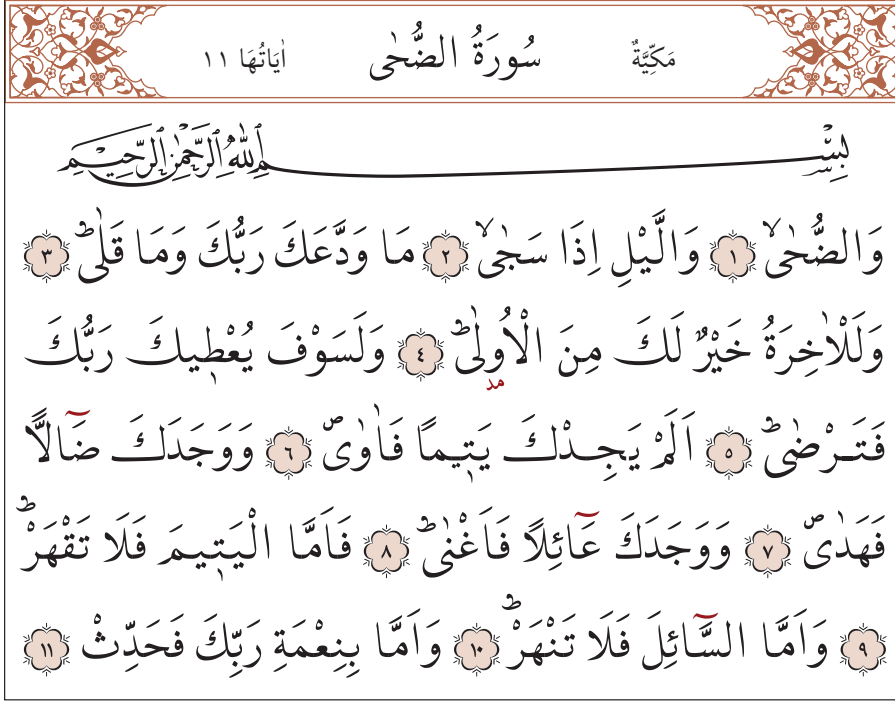 مَكِّيَّةٌ سُورَةُ الضُّحٰى اٰيَاتُهَا ١١
بِسْمِ اللّٰهِ الرَّحْمٰنِ الرَّحِيمِ
وَالضُّحٰىۙ ١ وَالَّيْلِ اِذَا سَجٰىۙ ٢ مَا وَدَّعَكَ رَبُّكَ وَمَا قَلٰىۜ ٣
وَلَلْاٰخِرَةُ خَيْرٌ لَكَ مِنَ الْاُو۫لٰىۜ ٤ وَلَسَوْفَ يُعْط۪يكَ رَبُّكَ
مد
فَتَرْضٰىۜ ٥ اَلَمْ يَجِدْكَ يَت۪يمًا فَاٰوٰىۖ ٦ وَوَجَدَكَ ضَٓالًّا
فَهَدٰىۖ ٧ وَوَجَدَكَ عَٓائِلًا فَاَغْنٰىۜ ٨ فَاَمَّا الْيَت۪يمَ فَلَا تَقْهَرْۜ
٩ وَاَمَّا السَّٓائِلَ فَلَا تَنْهَرْۜ ١٠ وَاَمَّا بِنِعْمَةِ رَبِّكَ فَحَدِّثْ ١١